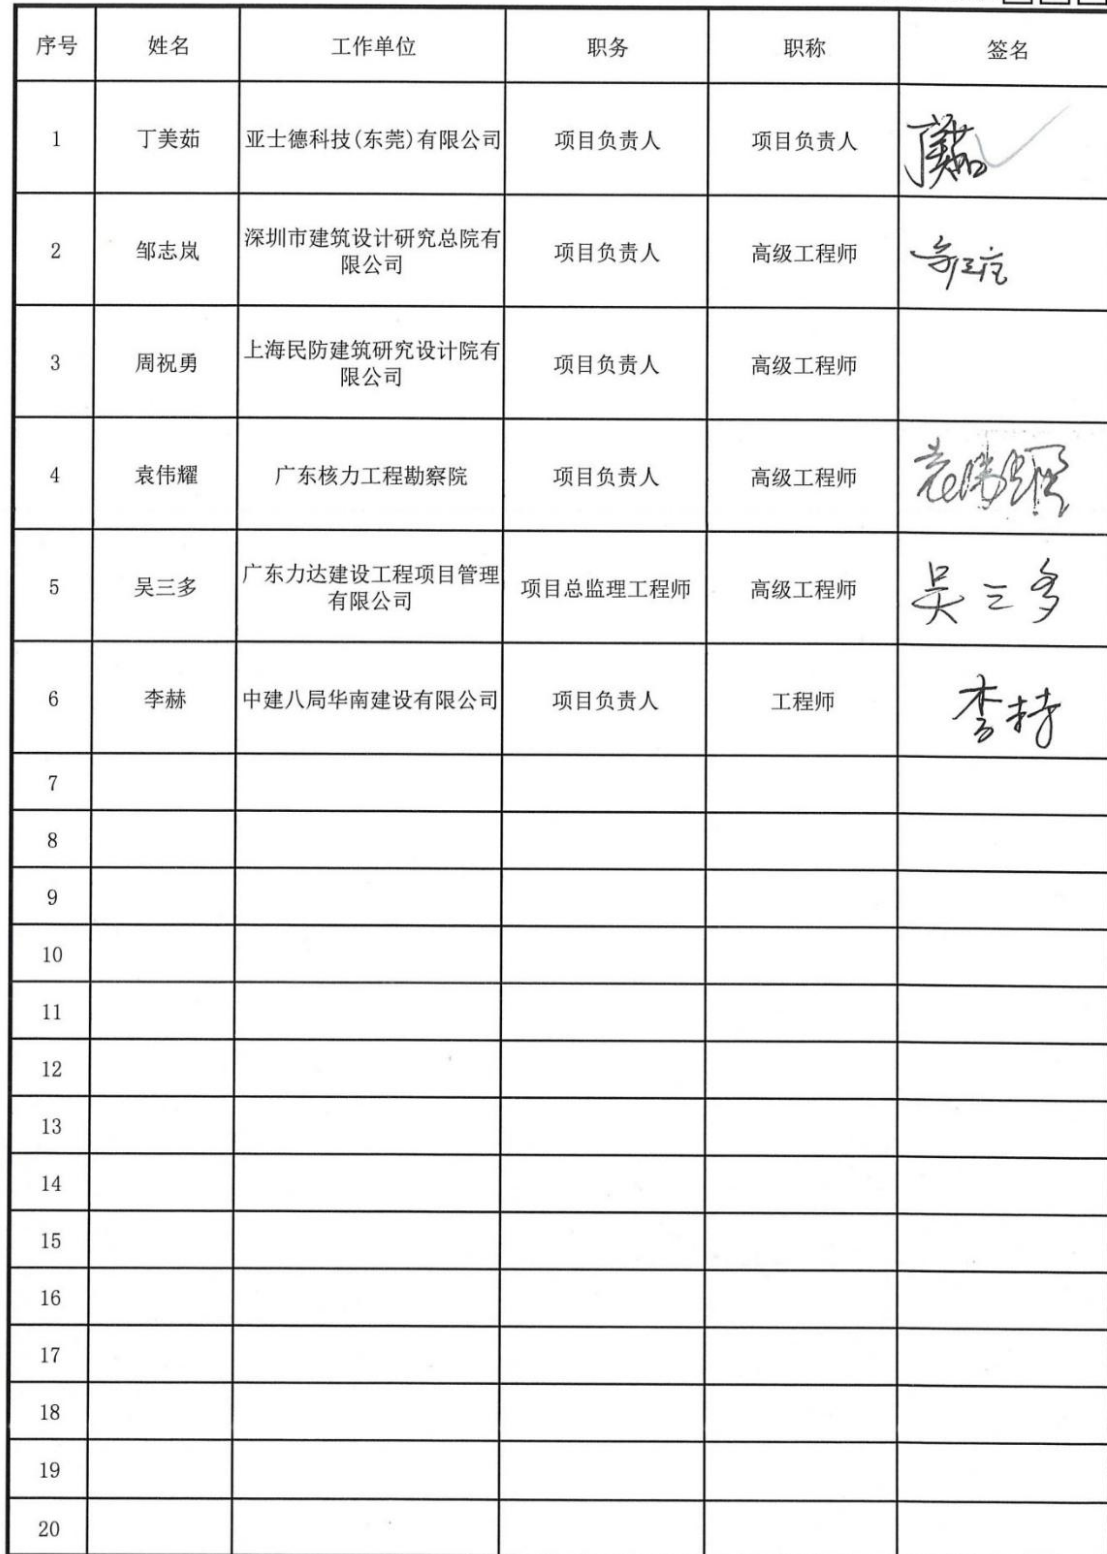 序号 姓名 工作单位 职务 职称 签名
1 丁美茹 亚士德科技(东莞)有限公司 项目负责人 项目负责人 丁美茹
2 邹志岚 深圳市建筑设计研究总院有限公司 项目负责人 高级工程师
3 周祝勇 上海民防建筑研究设计院有限公司 项目负责人 高级工程师
4 袁伟耀 广东核力工程勘察院 项目负责人 高级工程师 袁伟耀
5 吴三多 广东力达建设工程项目管理有限公司 项目总监理工程师 高级工程师 吴三多
6 李赫 中建八局华南建设有限公司 项目负责人 工程师
7
8
9
10
11
12
13
14
15
16
17
18
19
20